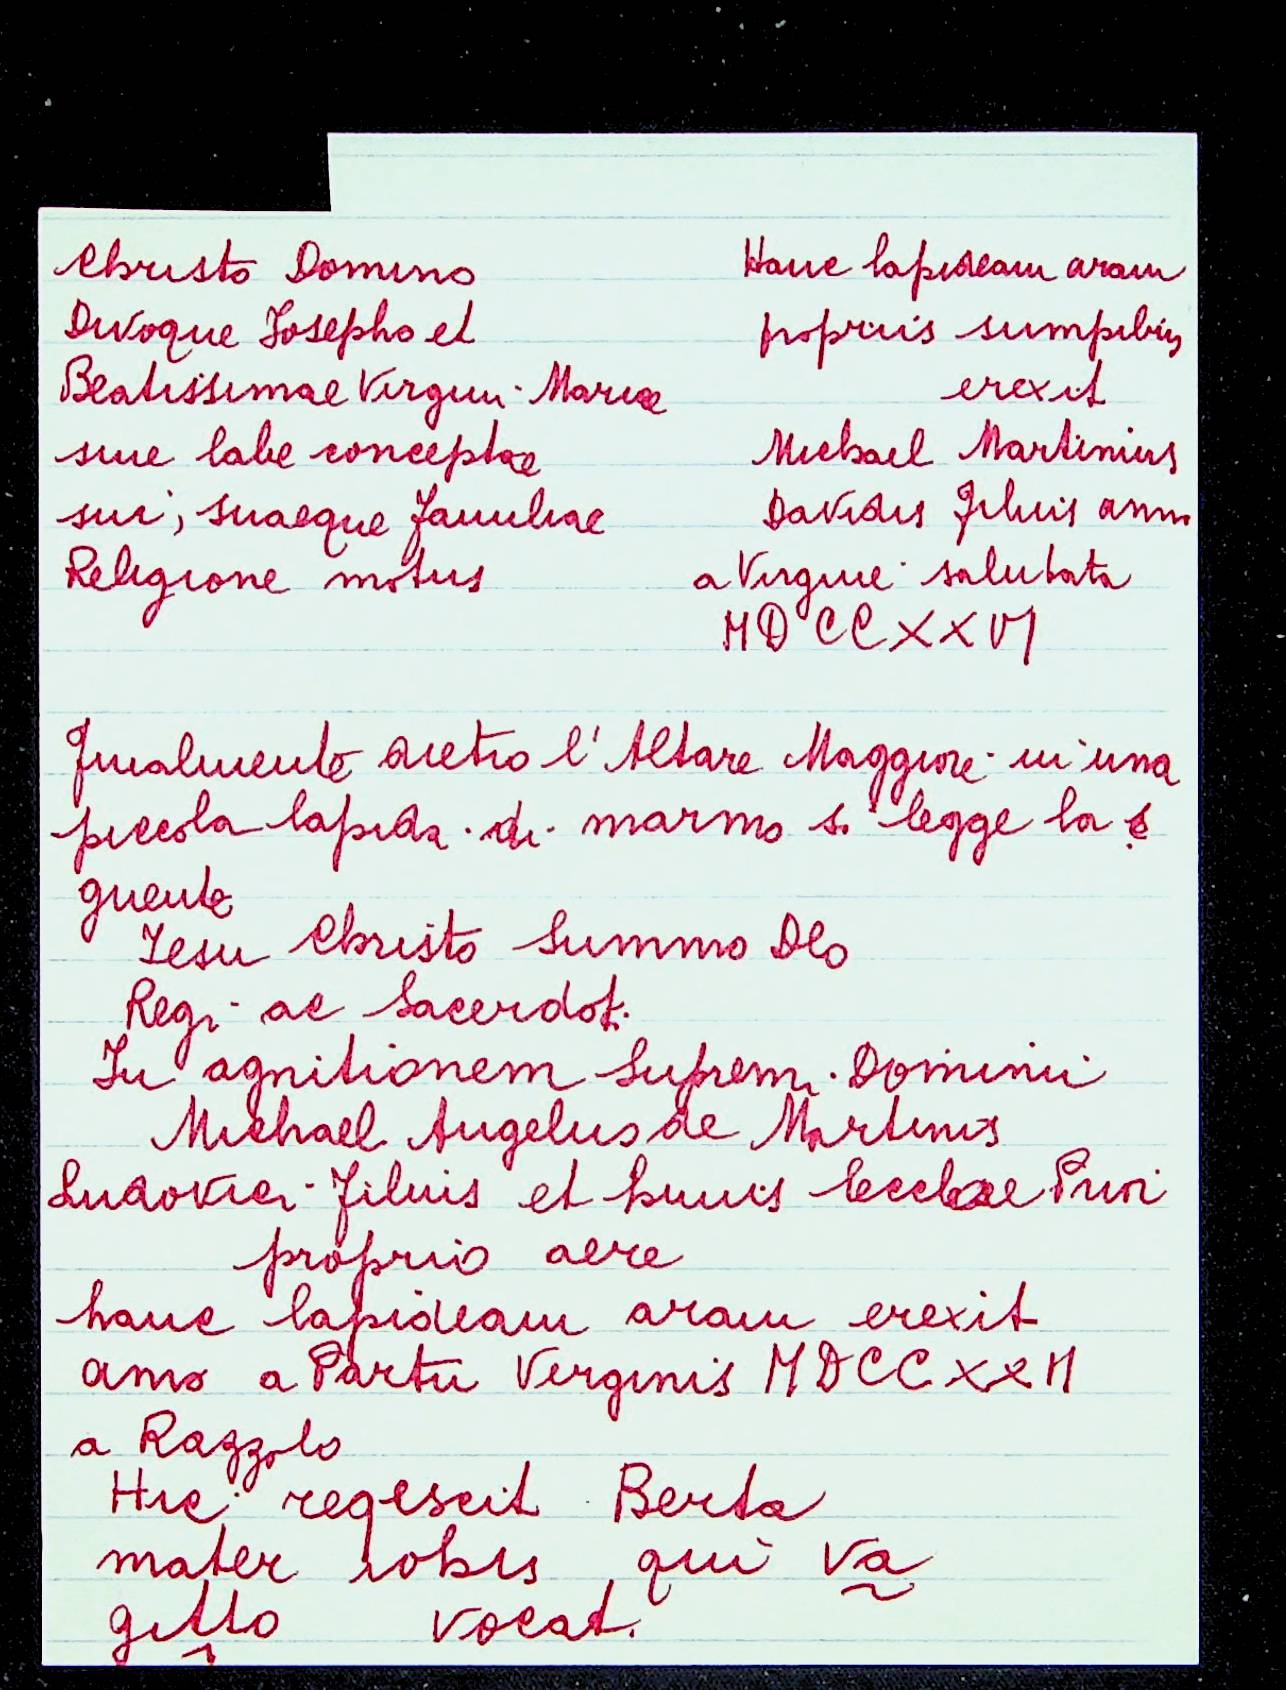 Christo Domino
Divoque Josepho et
Beatissimae Virgini Mariae
sine labe conceptae
sui, suaeque familiae
Religione motus
Hanc lapideam aram
propriis sumptibus
erexit
Michael Martinius
Davidis filius anno
a Virgine salutata
MDCCXXVI
Finalmente dietro l'Altare Maggiore in una
piccola lapida di marmo si legge la se
guente
Iesu Christo Summo Deo
Regi ac Sacerdot.
In agnitionem Supremi Dominii
Michael Angelus de Martinis
Ludovici filius et huius Ecclae Prior
proprio aere
hanc lapideam aram erexit
anno a Partu Verginis MDCCXXII
a Razzolo
Hic reqescit Berta
mater iobis qui va
gitto vocat.